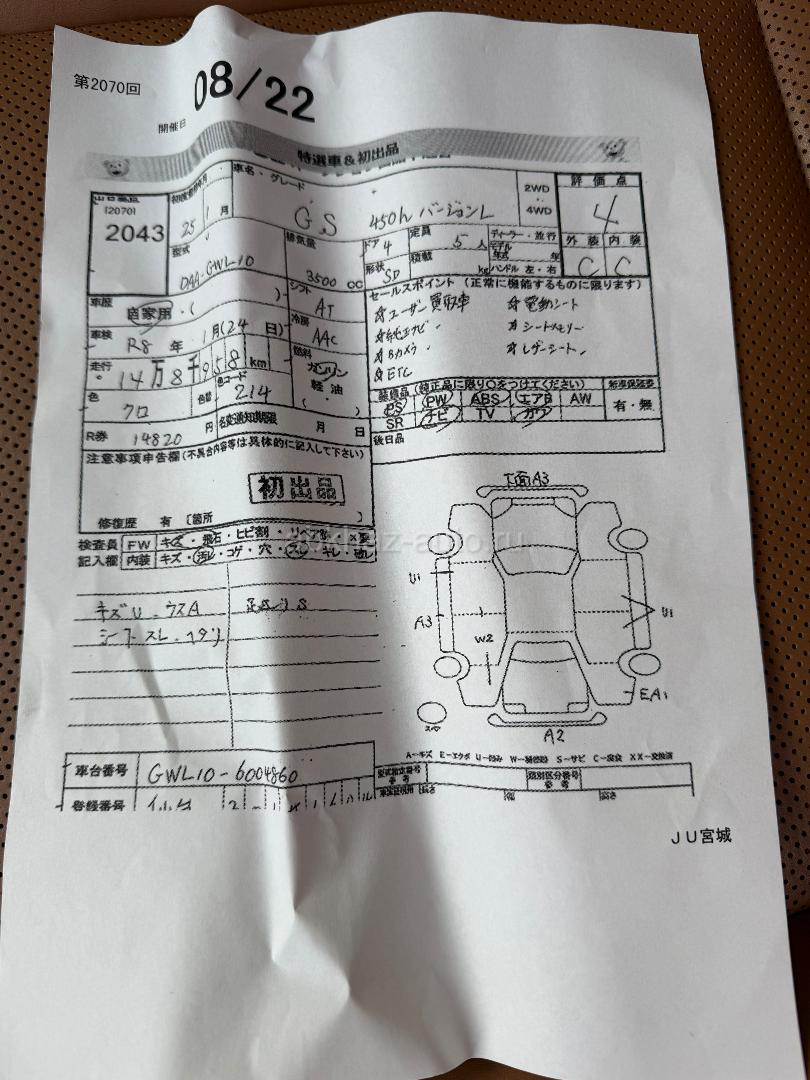 第2070回
08/22
開催日
特選車&初出品
(2070)
2043
車名・グレード
GS 450h バージョンL
2WD
4WD
評価点
4
外装 内装
C C
25年 1月
型式
DAA-GWL10
排気量
3500 cc
ドア 4
形状 SD
定員 5人
積載 kg
ハンドル 左・右
車歴
自家用・( )
シフト
AT
冷房
AAC
燃料
ガソリン
軽油
( )
車検
R8 年 1月(24日)
走行
14万8千958km
色
クロ
色替
色コード
214
R券 14820 円
名変通知期限 月 日
セールスポイント (正常に機能するものに限ります)
☆ユーザー買取車
☆純正ナビ
☆Bカメラ
☆ETC
☆電動シート
☆シートメモリー
☆レザーシート
装備品 (純正品に限り○をつけてください)
PS PW ABS エアB AW
SR ナビ TV カワ
有・無
後日品
注意事項申告欄(不具合内容等は具体的に記入して下さい)
初出品
修復歴 有 〔箇所 〕
検査員
記入欄
FW キズ・飛石・ヒビ割
内装 キズ・汚れ・コゲ・穴・スレ・キレ
キズU ウスA
シートスレ・ヘタリ
下面A3
U1
A3
W2
U1
EA1
A2
スペア
A-キズ E-エクボ U-凹み S-サビ C-腐食 XX-交換済
車台番号
GWL10-6004860
登録番号
型式指定番号
参考
類別区分番号
参考
長さ 幅 高さ
JU宮城